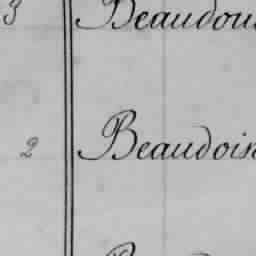 3 Beaudou
2 Beaudoin